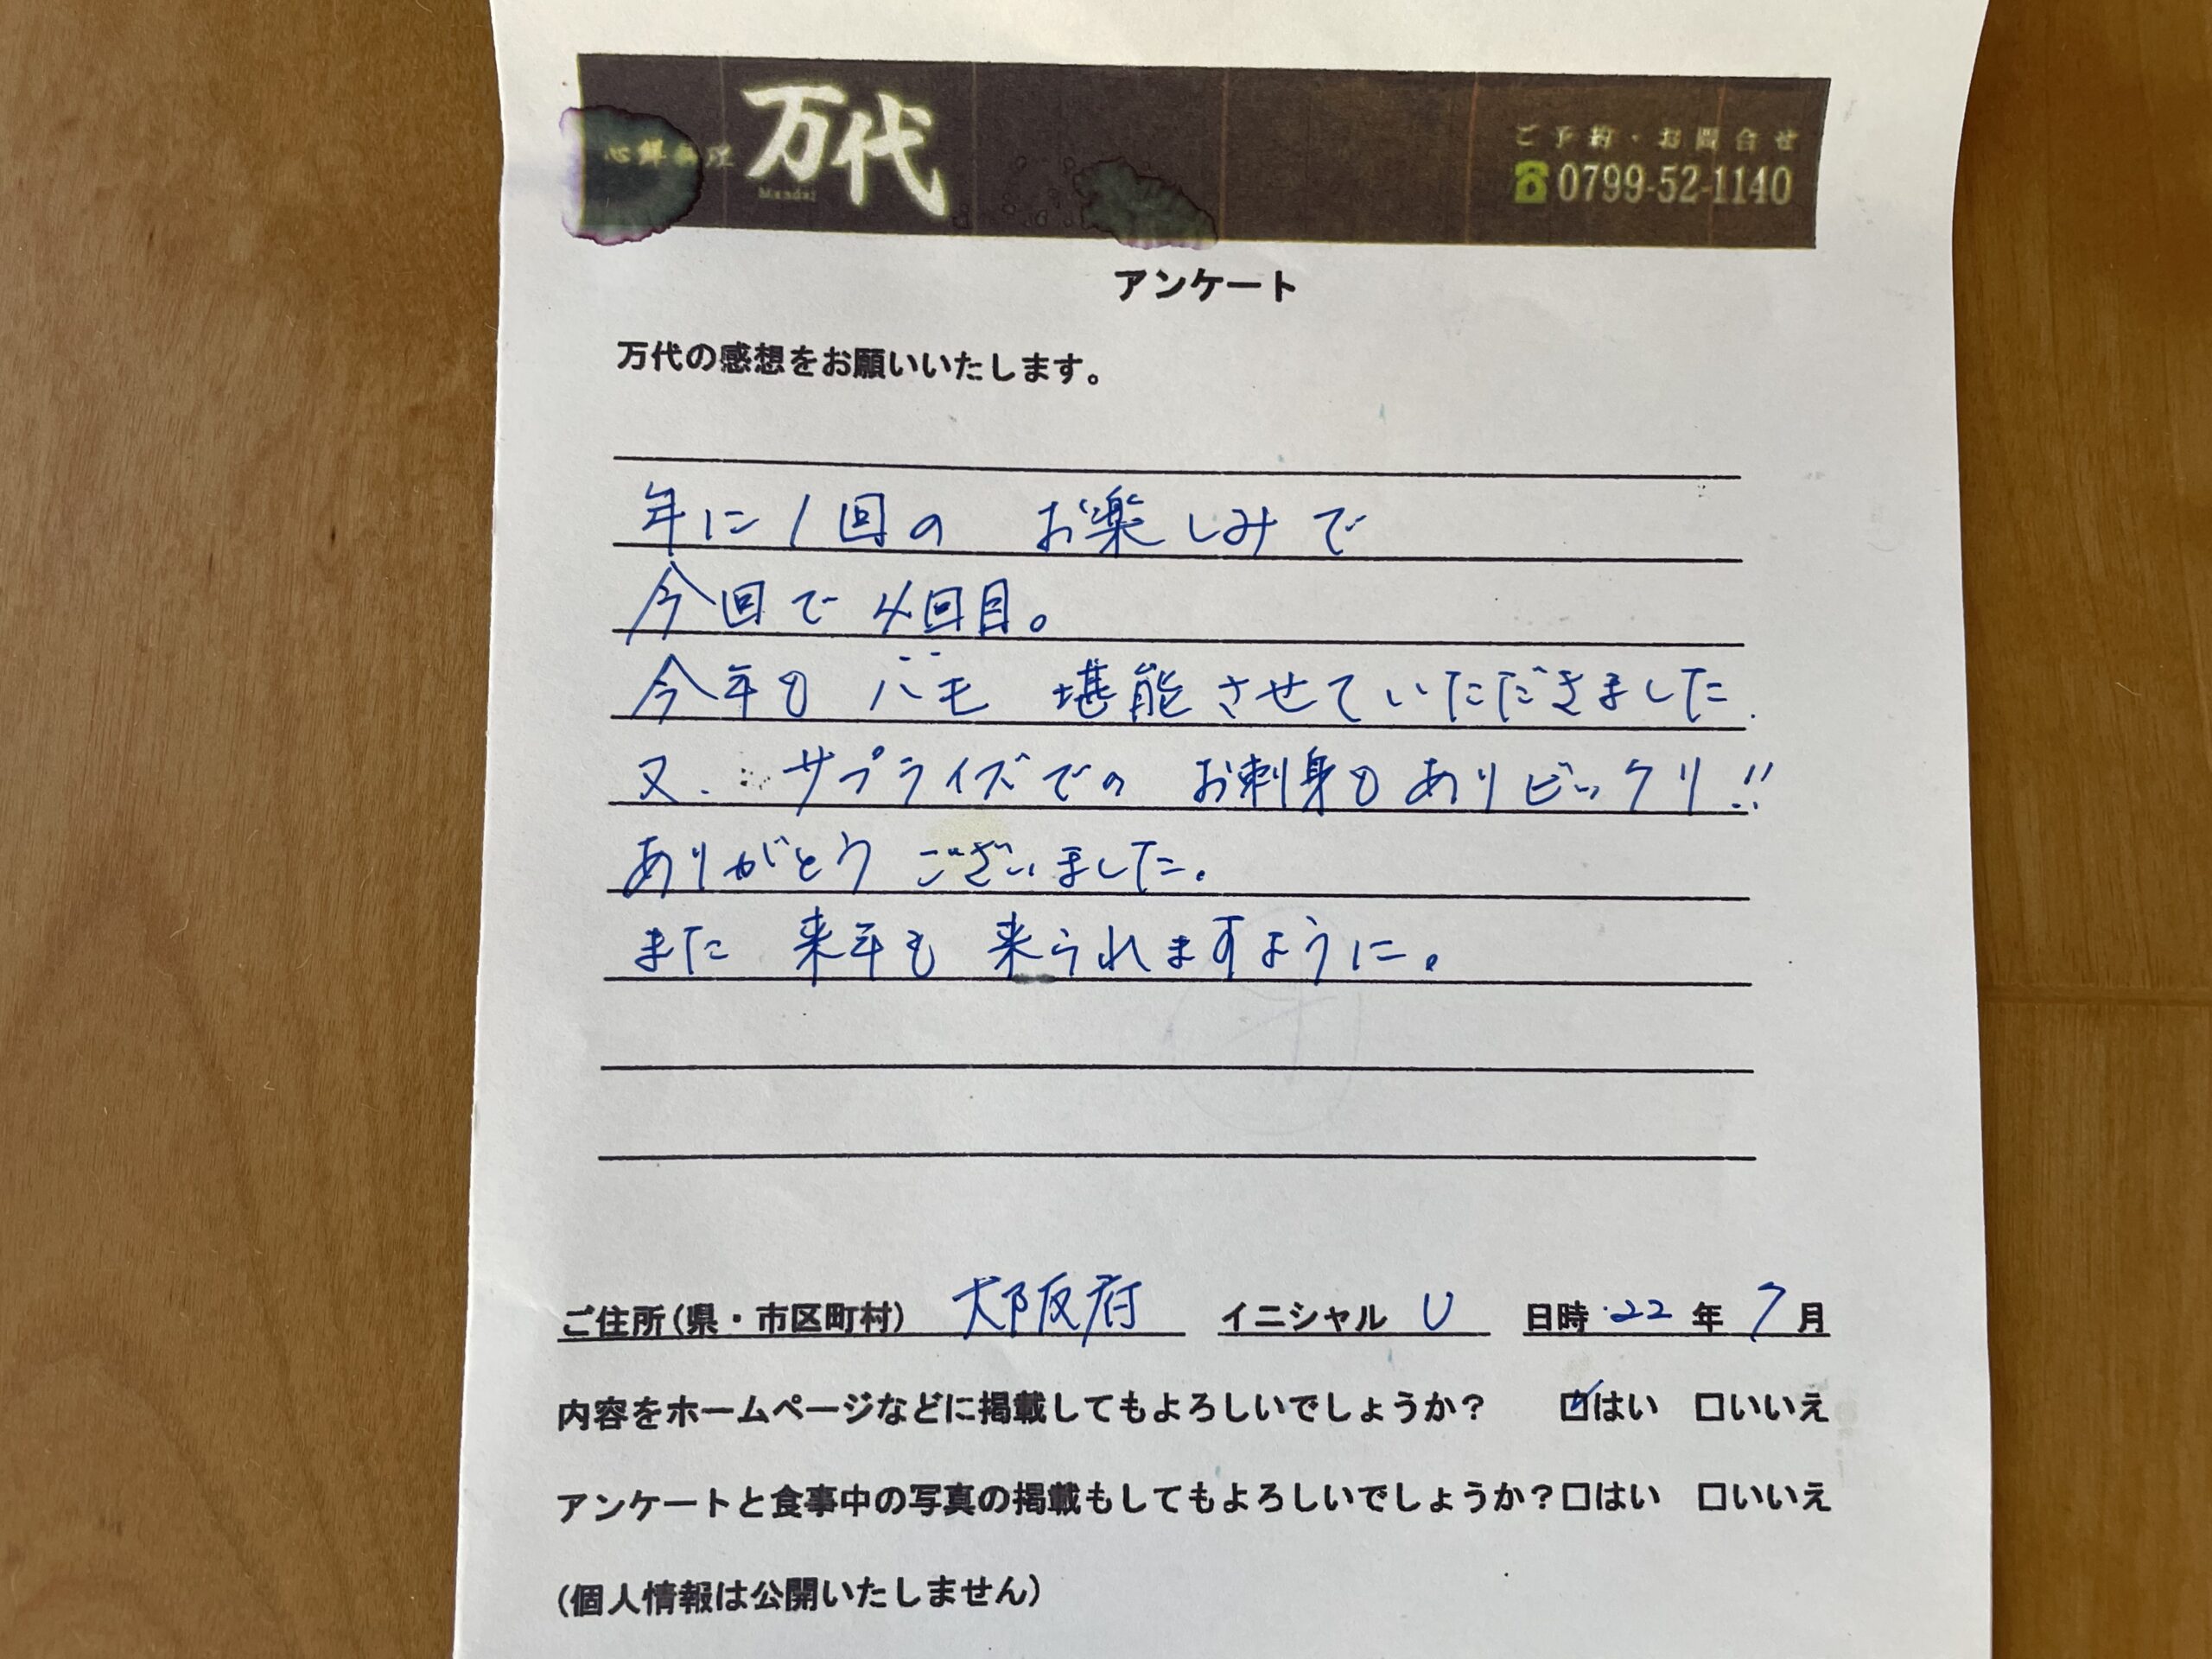 心鮮料理 万代
Mandai
ご予約・お問合せ
☎0799-52-1140
アンケート
万代の感想をお願いいたします。
年に1回の お楽しみで
今回で4回目。
今年も ハモ 堪能させていただきました.
又. サプライズでの お刺身もありビックリ!!
ありがとう ございました.
また 来年も 来られますように。
ご住所(県・市区町村) 大阪府 イニシャル U 日時 '22 年 7 月
内容をホームページなどに掲載してもよろしいでしょうか? ☑はい □いいえ
アンケートと食事中の写真の掲載もしてもよろしいでしょうか?□はい □いいえ
(個人情報は公開いたしません)